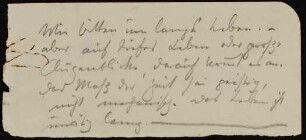 Wir bitten um langes Leben. –
aber auf tiefes Leben oder große
Augenblicke, darauf kommt es an.
Das Maß der Zeit sei geistig,
nicht mechanisch. Das Leben ist
unnötig lang.